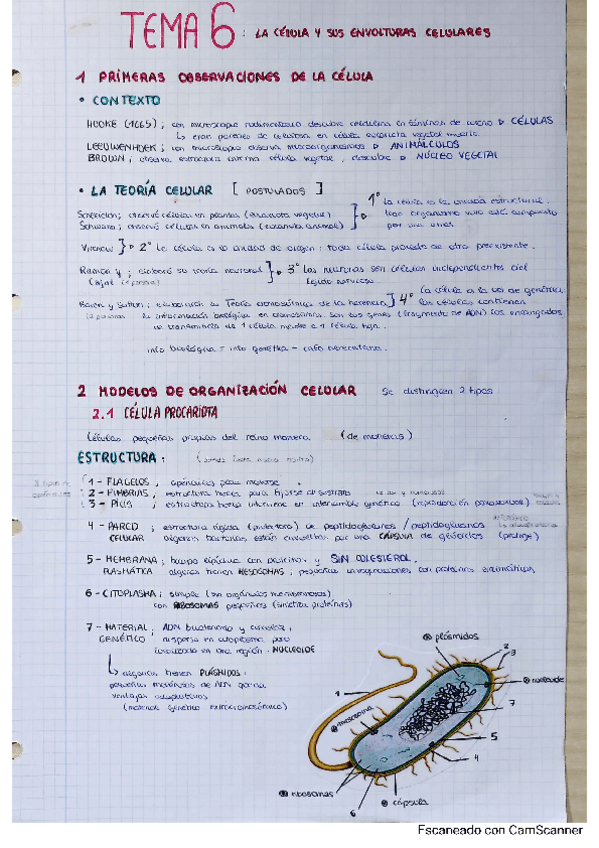 TEMA 6: LA CÉLULA Y SUS ENVOLTURAS CELULARES
1 PRIMERAS OBSERVACIONES DE LA CÉLULA
• CONTEXTO
HOOKE (1665); con microscopio rudimentario descubre celdillas en láminas de corcho CÉLULAS
eran paredes de celulosa en célula vegetal muerta.
LEEUWENHOEK; con microscopio observa microorganismos ANIMÁLCULOS
BROWN; observa estructura interna célula vegetal, descubre NÚCLEO VEGETAL
• LA TEORÍA CELULAR [POSTULADOS]
Schleiden; observó células en plantas (anatomía vegetal)
Schwann; observó células en animales (anatomía animal)
1º la célula es la unidad estructural.
todo organismo vivo está compuesto
por una o más
Virchow 2º La célula es la unidad de origen: toda célula procede de otra preexistente.
Ramón y Cajal; elaboró su teoría neuronal 3º Las neuronas son células independientes del
tejido nervioso
Sutton; Teoría cromosómica de la herencia 4º La célula es la ud de genética
las células contienen
la información biológica en cromosomas. son los genes (fragmentos de ADN) los encargados
de transmitirla de 1 célula madre a 1 célula hija.
info biológica = info genética = info hereditaria.
2 MODELOS DE ORGANIZACIÓN CELULAR Se distinguen 2 tipos
2.1 CÉLULA PROCARIOTA
Células pequeñas propias del reino monera (de moneras)
ESTRUCTURA:
1 - FLAGELOS; apéndices para moverse.
2 - FIMBRIAS; estructura hueca para fijarse al sustrato
3 - PILIS; estructura hueca intervienen en intercambio genético (reproducción parasexual)
4 - PARED CELULAR; estructura rígida (protectora) de peptidoglucanos / peptidoglicanos
algunas bacterias están envueltas por una CÁPSULA de glúcidos (protege)
5 - MEMBRANA PLASMÁTICA; bicapa lipídica con proteínas y SIN COLESTEROL.
algunas tienen MESOSOMAS; pequeñas invaginaciones con proteínas enzimáticas
6 - CITOPLASMA; simple (sin orgánulos membranosos)
con RIBOSOMAS pequeños (sintetiza proteínas)
7 - MATERIAL GENÉTICO; ADN bicatenario y circular,
disperso en citoplasma pero
localizado en una región. NUCLEOIDE
algunas tienen PLÁSMIDOS
pequeñas moléculas de ADN
ventajas adaptativas
(material genético extracromosómico)
plásmidos
2
3
nucleoide
1
mesosoma
7
5
4
ribosomas
cápsula
6
Escaneado con CamScanner